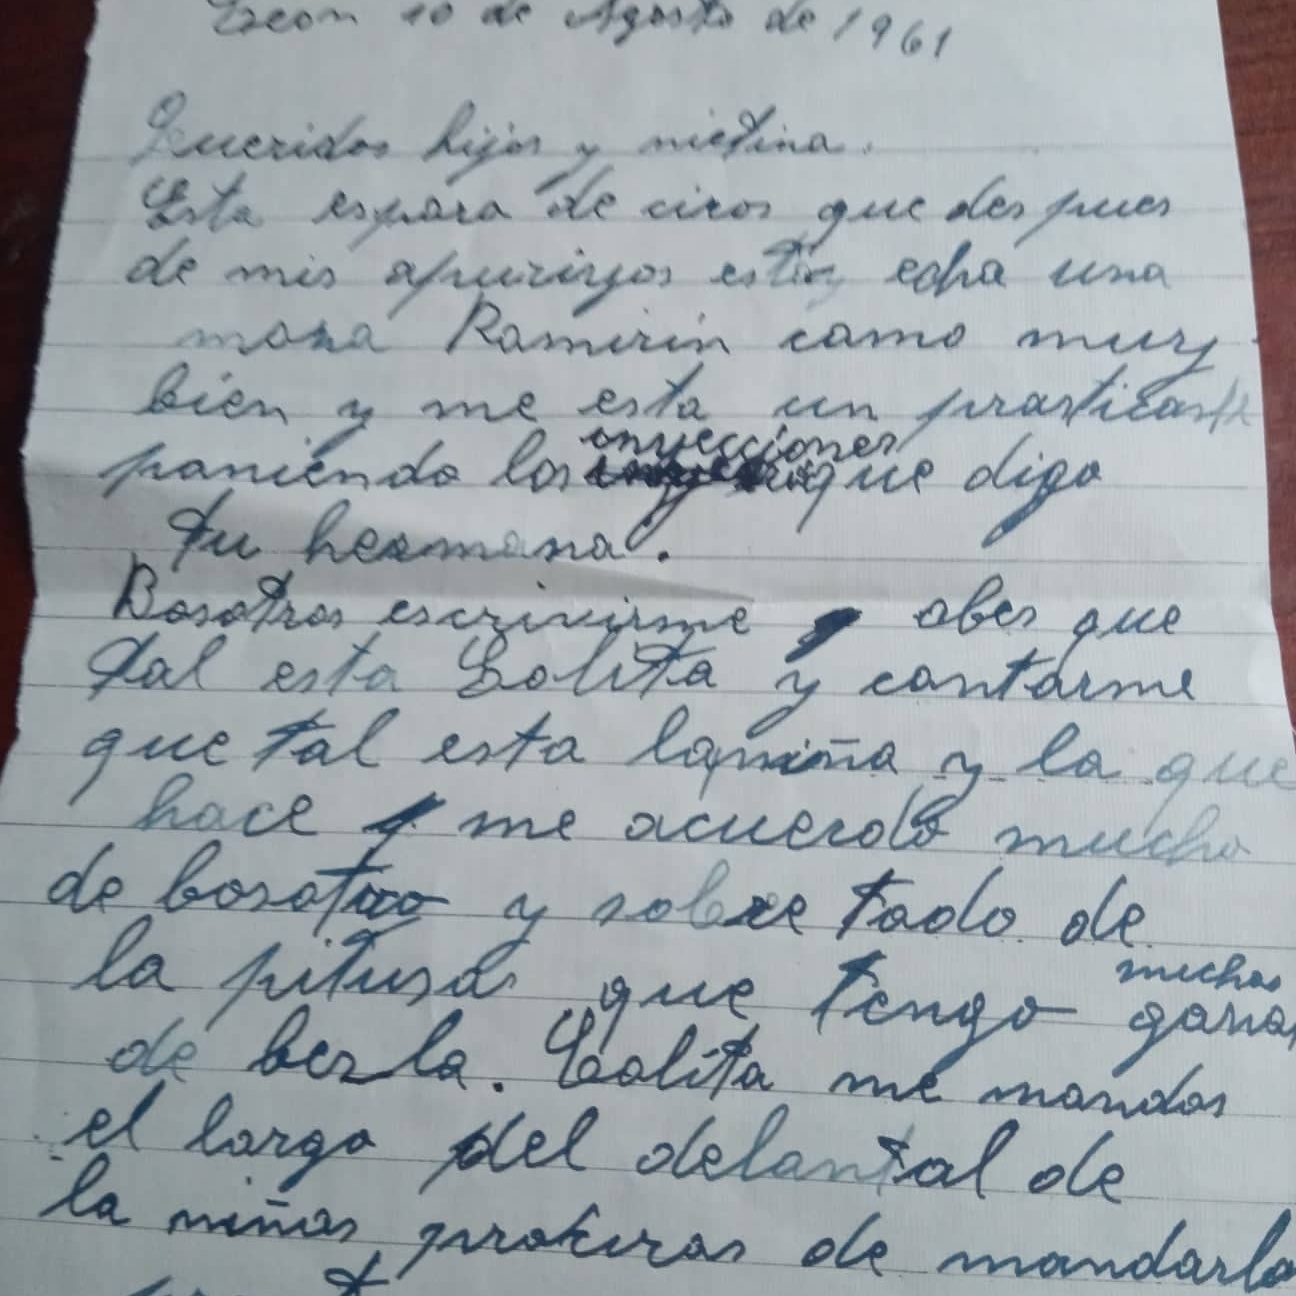 Leon 10 de Agosto de 1961
Queridos hijos y nietina.
Esta espara de ciros que des pues
de mis apuriyos estoy echa una
moza Ramirin camo muy
bien y me esta un prasticante
paniendo los inyecciones que digo
tu hermana.
Bosotros escrivirme y abes que
tal esta Lolita y contarme
que tal esta la niña y la que
hace y me acuerdo mucho
de bosotros y sobre todo de
la pitusa que tengo muchas ganas
de berla. Lolita me mandas
el largo del delantal de
la niña, prokuras de mandarlo